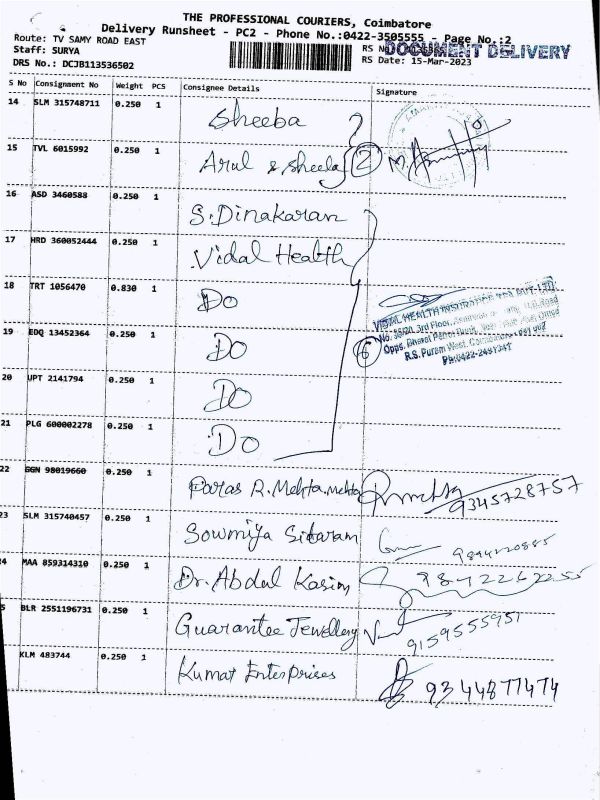 THE PROFESSIONAL COURIERS, Coimbatore
Delivery Runsheet - PC2 - Phone No.:0422-3505555 - Page No.:2
Route: TV SAMY ROAD EAST
RS No
DOCUMENT DELIVERY
Staff: SURYA
RS Date: 15-Mar-2023
DRS No.: DCJB113536502
S No Consignment No Weight PCS Consignee Details Signature
14 SLM 315748711 0.250 1 Sheeba
15 TVL 6015992 0.250 1 Arul & Sheela 2
16 ASD 3460588 0.250 1 S. Dinakaran
17 HRD 360052444 0.250 1 Vidal Health
18 TRT 1056470 0.830 1 Do
VIDAL HEALTH INSURANCE TPA PVT. LTD
3rd Floor,
19 EDQ 13452364 0.250 1 Do 6
R.S. Puram West, Coimbatore
Ph:0422-2491341
20 UPT 2141794 0.250 1 Do
21 PLG 600002278 0.250 1 Do
22 GGN 98019660 0.250 1 Paras R. Mehta. Mehta 9345728757
23 SLM 315740457 0.250 1 Sowmiya Sitaram
24 MAA 859314310 0.250 1 Dr. Abdul Kasim
5 BLR 2551196731 0.250 1 Guarantee Jewellery 9159555951
KLM 483744 0.250 1 Kumat Enterprises 9344877474